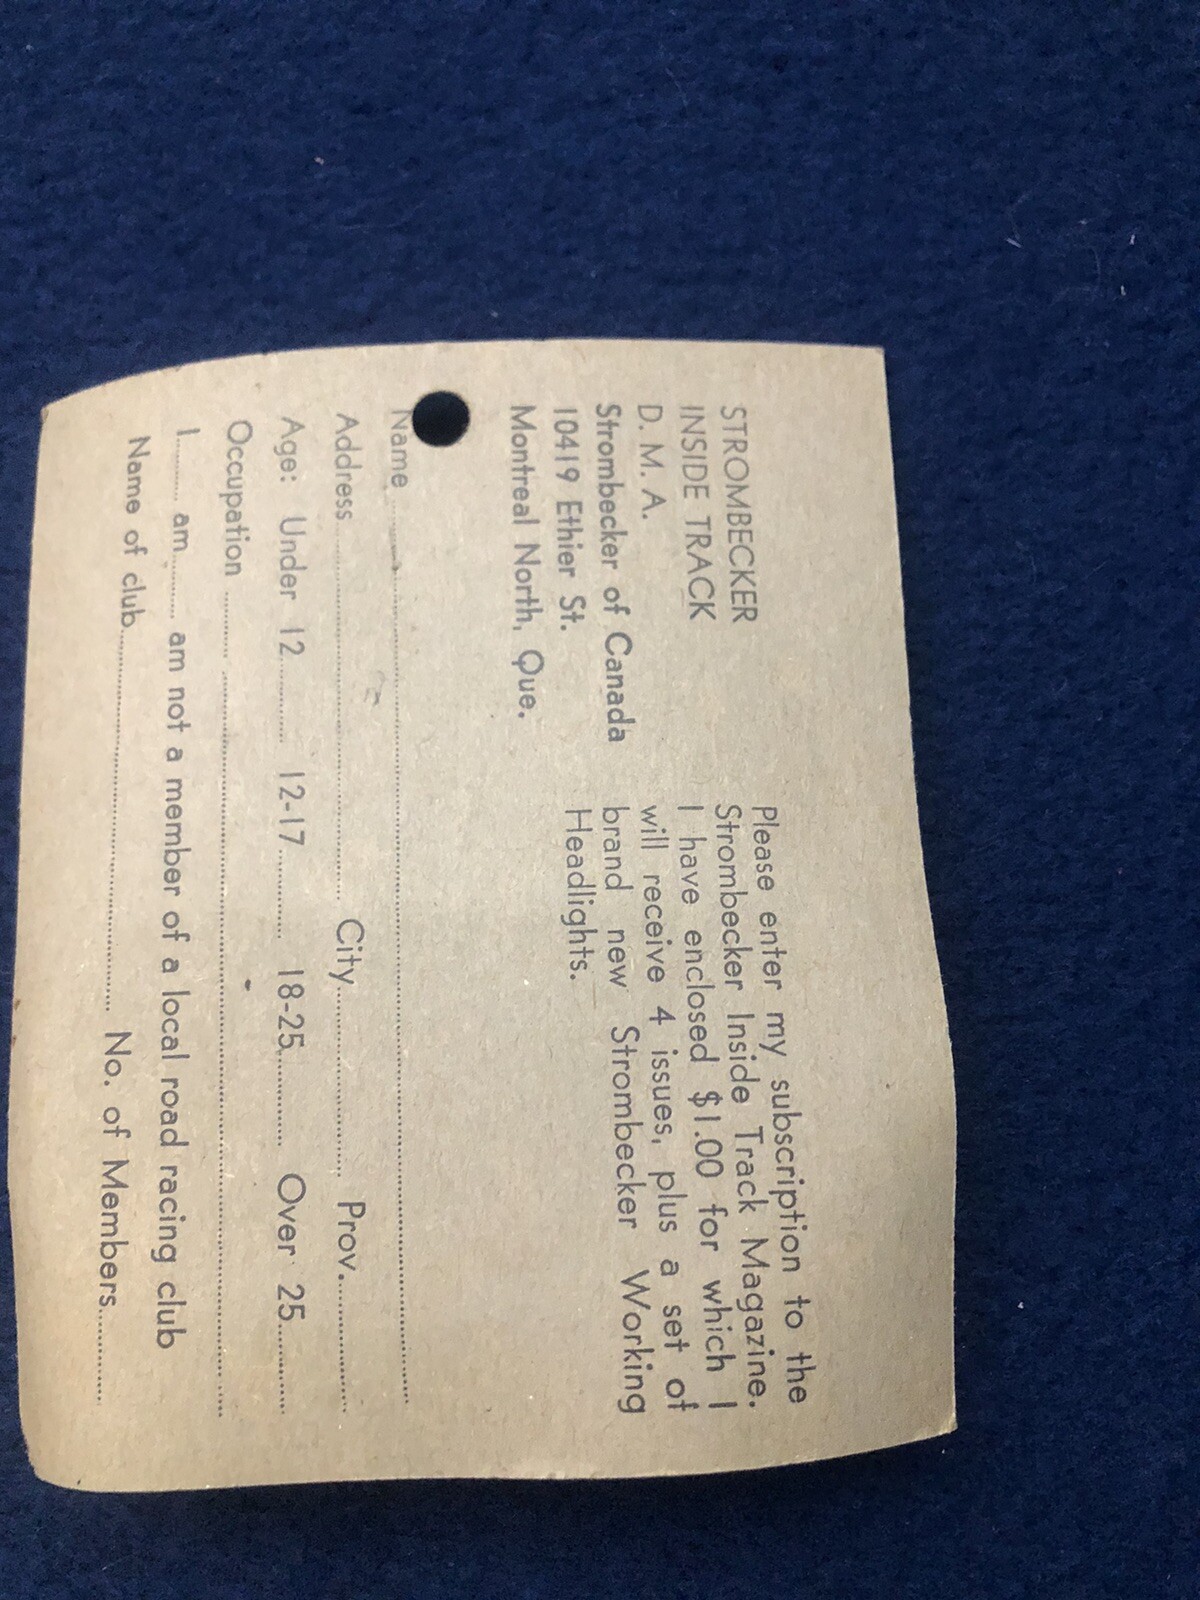 STROMBECKER
INSIDE TRACK
D. M. A.
Strombecker of Canada
10419 Ethier St.
Montreal North, Que.
Please enter my subscription to the
Strombecker Inside Track Magazine.
I have enclosed $1.00 for which I
will receive 4 issues, plus a set of
brand new Strombecker Working
Headlights.
Name
Address City Prov.
Age: Under 12 12-17 18-25 Over 25
Occupation
I am am not a member of a local road racing club
Name of club No. of Members